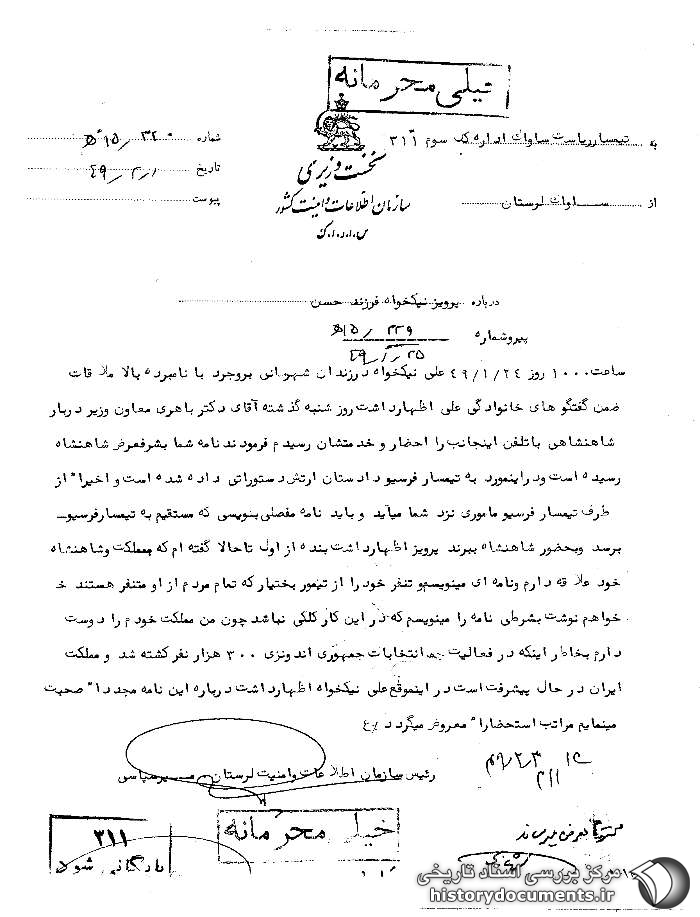 خیلی محرمانه
به تیمسار ریاست ساواک اداره کل سوم ۳۱۱
شماره ۳۲۰ / ۱۵ه
نخست وزیری
تاریخ ۴۹/۲/۱
سازمان اطلاعات و امنیت کشور
پیوست
س.ا.و.ا.ک
از ساواک لرستان
درباره پرویز نیکخواه فرزند حسن
پیرو شماره ۲۲۹ / ۱۵ه
۴۹/۱/۲۵
ساعت ۱۰۰۰ روز ۴۹/۱/۲۴ علی نیکخواه در زندان شهربانی بروجرد با نامبرده بالا ملاقات
ضمن گفتگو های خانوادگی علی اظهارداشت روز شنبه گذشته آقای دکتر باهری معاون وزیر دربار
شاهنشاهی باتلفن اینجانب را احضار و خدمتشان رسیدم فرمودند نامه شما بشرفعرض شاهنشاه
رسیده است ودراینمورد به تیمسار فرسیو دادستان ارتش دستوراتی داده شده است و اخیرا" از
طرف تیمسار فرسیو ماموری نزد شما میآید و باید نامه مفصلی بنویسی که مستقیم به تیمسارفرسیو
برسد وبحضور شاهنشاه ببرند پرویز اظهارداشت بنده از اول تاحالا گفته ام که بمملکت وشاهنشاه
خود علاقه دارم ونامه ای مینویسم و تنفر خود را از تیمور بختیار که تمام مردم از او متنفر هستند خ
خواهم نوشت بشرطی نامه را مینویسم که در این کار کلکی نباشد چون من مملکت خودم را دوست
دارم بخاطر اینکه در فعالیت انتخابات جمهوری اندونزی ۳۰۰ هزار نفر کشته شد و مملکت
ایران در حال پیشرفت است در اینموقع علی نیکخواه اظهارداشت درباره این نامه مجددا" صحبت
مینمایم مراتب استحضارا" معروض میگردد
رئیس سازمان اطلاعات وامنیت لرستان
خیلی محرمانه
۳۱۱
بایگانی شود
مرکز بررسی اسناد تاریخی
historydocuments.ir